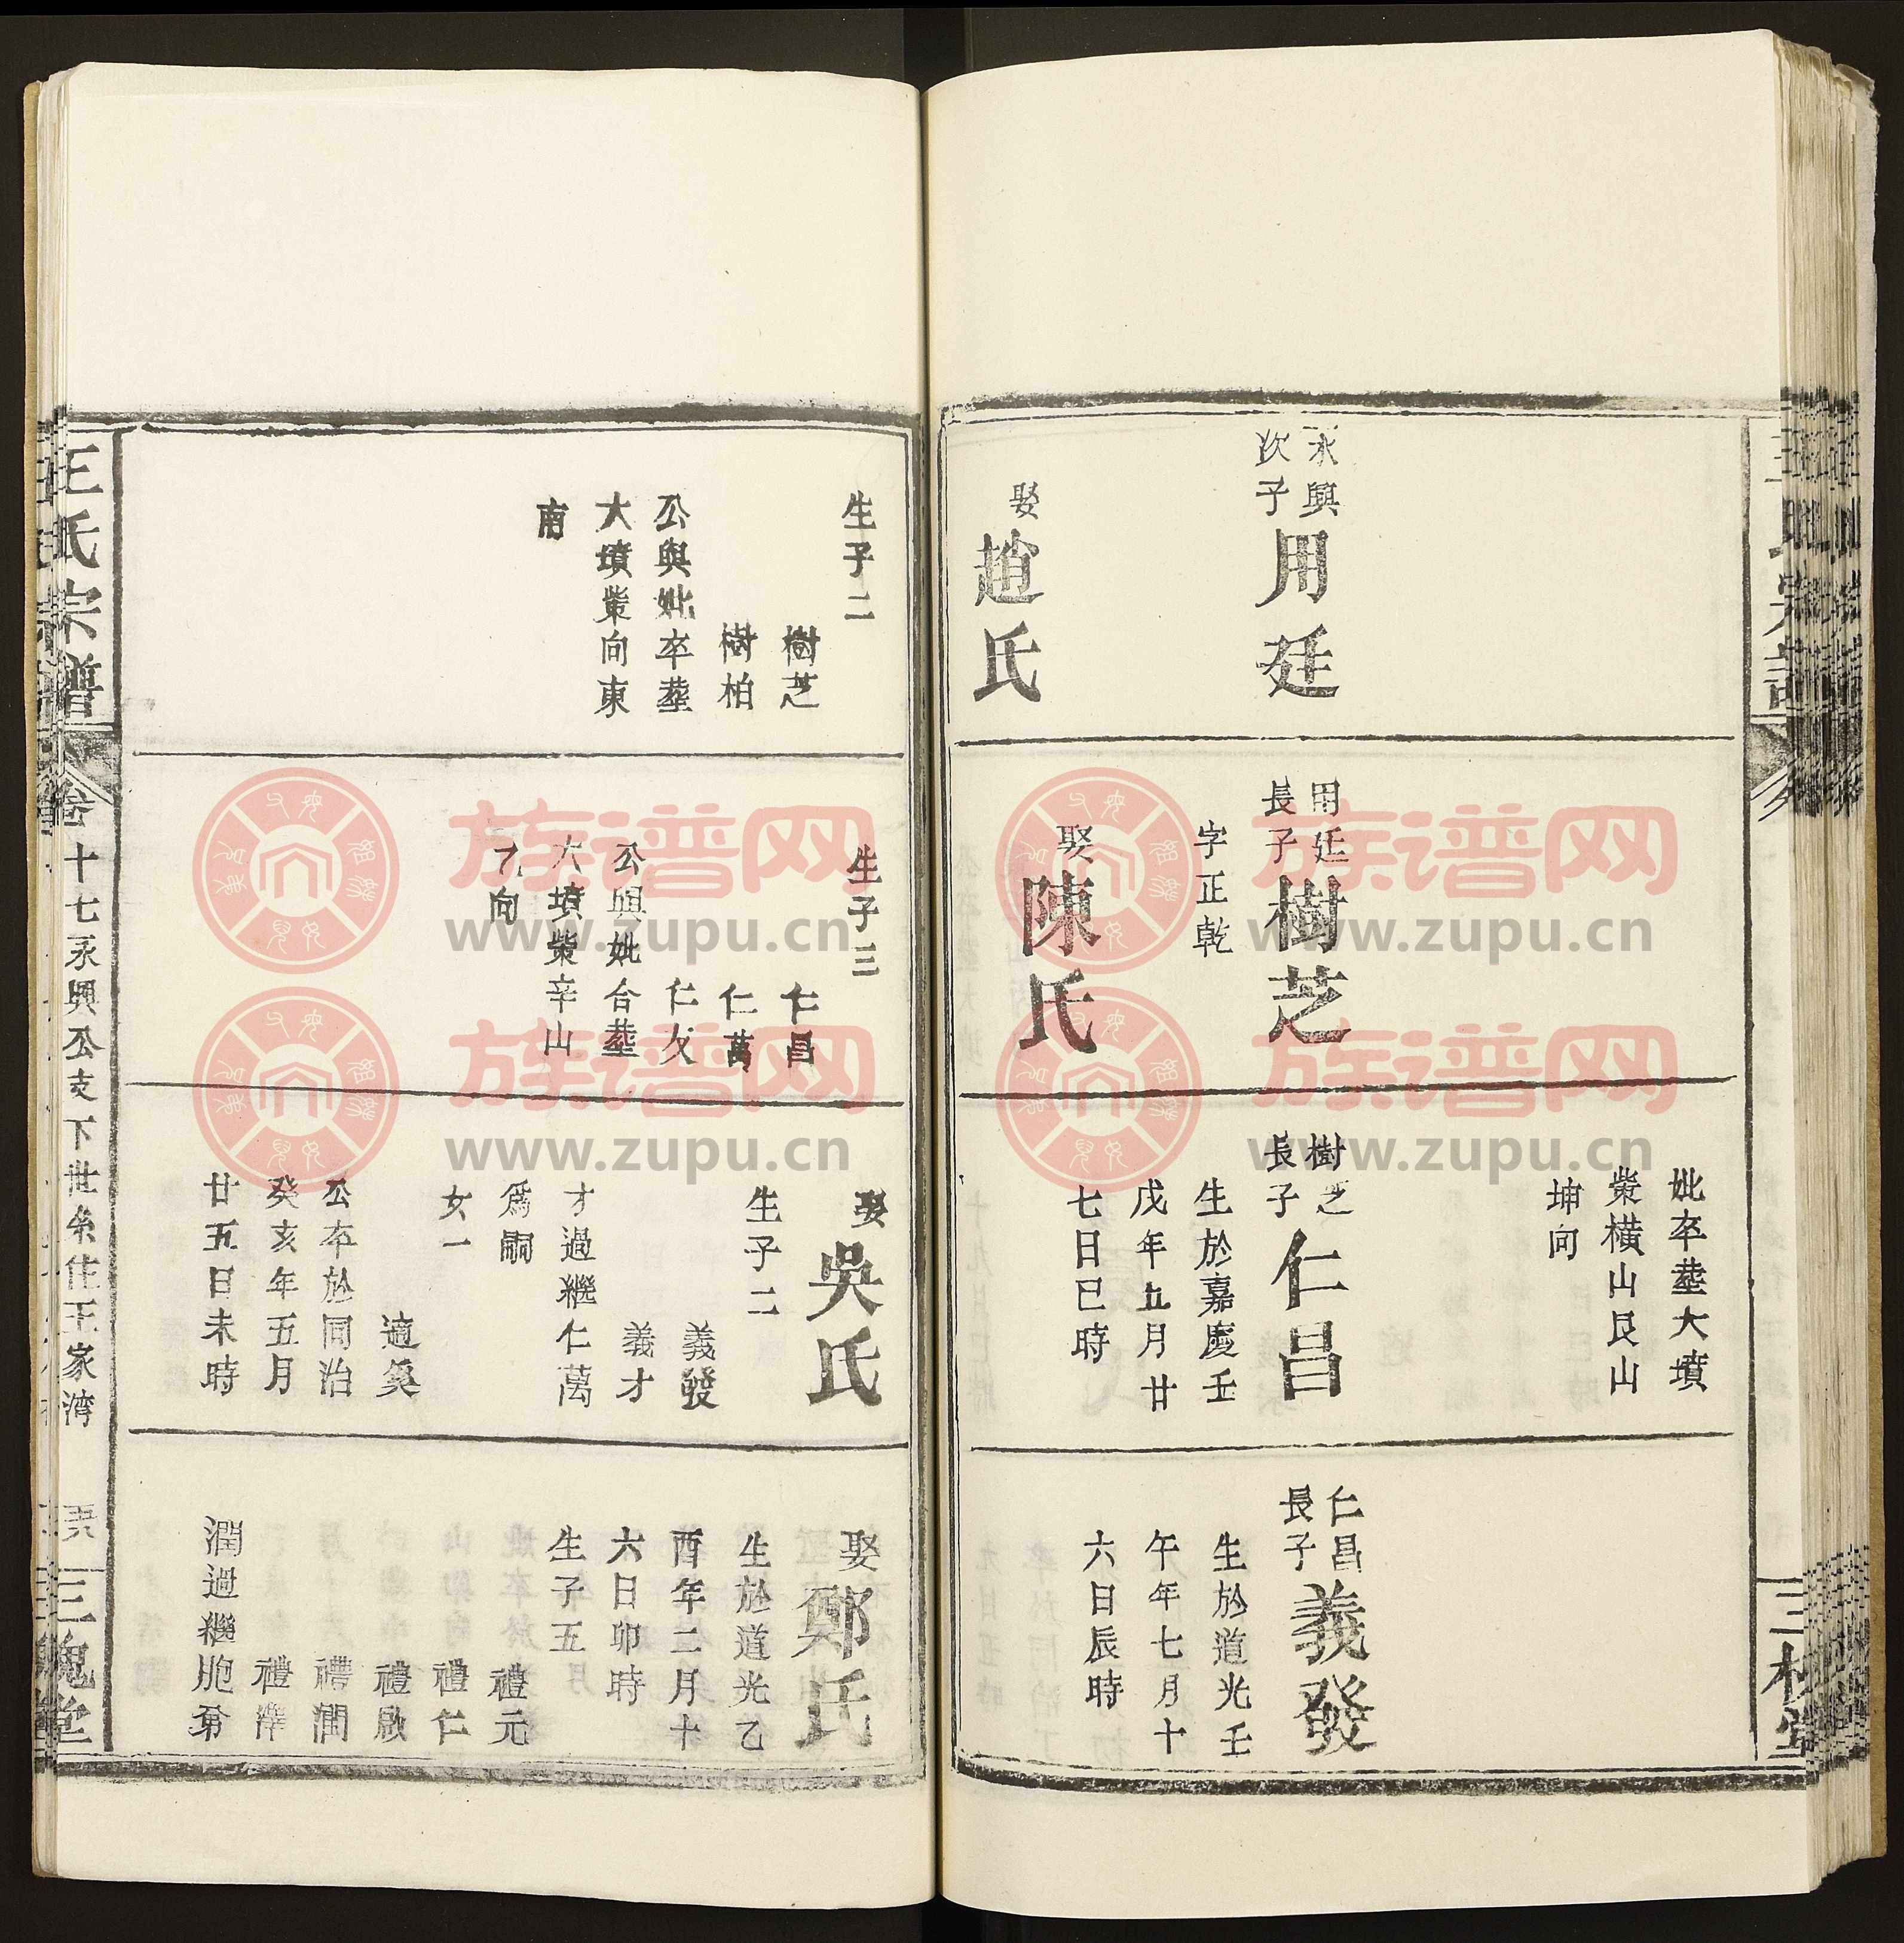 永興
次子
用廷
娶
趙氏
用廷
長子
樹芝
字正乾
娶
陳氏
妣卒塟大墳
塋橫山艮山
坤向
樹芝
長子
仁昌
生於嘉慶壬
戊年五月廿
七日巳時
仁昌
長子
義發
生於道光壬
午年七月十
六日辰時
三槐堂
生子二
樹芝
樹柏
公與妣卒塟
大墳塋向東
南
生子三
仁昌
仁萬
公與妣合塟
大墳塋辛山
乙向
娶
吳氏
生子二
義發
義才
才過繼仁萬
爲嗣
女一
適奚
公卒於同治
癸亥年五月
廿五日未時
娶
鄭氏
生於道光乙
酉年二月十
六日卯時
生子五
禮元
禮仁
禮啟
禮潤
禮澤
潤過繼胞弟
王氏宗譜
卷十七永興公支下世系住王家湾
三槐堂
族谱网
www.zupu.cn
族谱网
www.zupu.cn
族谱网
www.zupu.cn
族谱网
www.zupu.cn